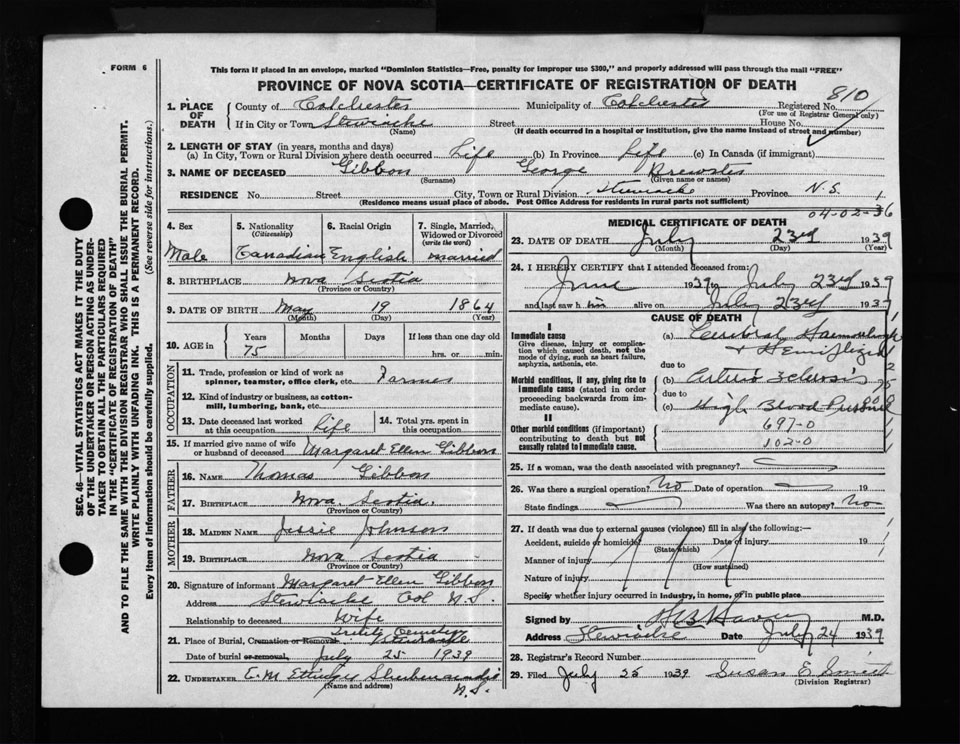 FORM 6
This form if placed in an envelope, marked "Dominion Statistics—Free, penalty for improper use $300," and properly addressed will pass through the mail "FREE"
PROVINCE OF NOVA SCOTIA—CERTIFICATE OF REGISTRATION OF DEATH
810
1. PLACE OF DEATH County of Colchester Municipality of Colchester Registered No.
(For use of Registrar General only)
If in City or Town Stewiacke Street House No.
(Name) (If death occurred in a hospital or institution, give the name instead of street and number)
2. LENGTH OF STAY (in years, months and days)
(a) In City, Town or Rural Division where death occurred Life (b) In Province Life (c) In Canada (if immigrant)
3. NAME OF DECEASED Gibbon George Brewster
(Surname) (Given name or names)
RESIDENCE No. Street City, Town or Rural Division Stewiacke Province N.S.
(Residence means usual place of abode. Post Office Address for residents in rural parts not sufficient)
04-02-36
4. Sex 5. Nationality (Citizenship) 6. Racial Origin 7. Single, Married, Widowed or Divorced (write the word)
Male Canadian English married
8. BIRTHPLACE Nova Scotia
(Province or Country)
9. DATE OF BIRTH May 19 1864
(Month) (Day) (Year)
10. AGE in Years Months Days If less than one day old
75 hrs. or min.
OCCUPATION
11. Trade, profession or kind of work as spinner, teamster, office clerk, etc. Farmer
12. Kind of industry or business, as cotton-mill, lumbering, bank, etc.
13. Date deceased last worked at this occupation Life 14. Total yrs. spent in this occupation
15. If married give name of wife or husband of deceased Margaret Ellen Gibbon
FATHER
16. NAME Thomas Gibbon
17. BIRTHPLACE Nova Scotia.
(Province or Country)
MOTHER
18. MAIDEN NAME Jessie Johnson
19. BIRTHPLACE Nova Scotia
(Province or Country)
20. Signature of informant Margaret Ellen Gibbon
Address Stewiacke Col N.S.
Relationship to deceased Wife
Cemetery
21. Place of Burial, Cremation or Removal Stewiacke
Date of burial or removal, July 25 1939
22. UNDERTAKER C. M Ettinger Shubenacadie
(Name and address) N.S.
MEDICAL CERTIFICATE OF DEATH
23. DATE OF DEATH July 23rd 1939
(Month) (Day) (Year)
24. I HEREBY CERTIFY that I attended deceased from:
June 1939 to July 23rd 1939
and last saw h im alive on July 23rd 1939
CAUSE OF DEATH
I
Immediate cause
Give disease, injury or complication which caused death, not the mode of dying, such as heart failure, asphyxia, asthenia, etc.
(a) Cerebral Haemorrhage
& Hemiplegia
due to
Morbid conditions, if any, giving rise to immediate cause (stated in order proceeding backwards from immediate cause).
(b) Arterio Sclerosis
due to
(c) High Blood Pressure
II
Other morbid conditions (if important) contributing to death but not causally related to immediate cause.
697-0
102-0
25. If a woman, was the death associated with pregnancy?
26. Was there a surgical operation? No Date of operation 19
State findings Was there an autopsy? No
27. If death was due to external causes (violence) fill in also the following:—
Accident, suicide or homicide? Date of injury 19
(State which)
Manner of injury
(How sustained)
Nature of injury
Specify whether injury occurred in industry, in home, or in public place
Signed by M.D.
Address Stewiacke Date July 24 1939
28. Registrar's Record Number
29. Filed July 25 1939 Susan E Smith
(Division Registrar)
SEC. 46—VITAL STATISTICS ACT MAKES IT THE DUTY
OF THE UNDERTAKER OR PERSON ACTING AS UNDER-
TAKER TO OBTAIN ALL THE PARTICULARS REQUIRED
IN THE "CERTIFICATE OF REGISTRATION OF DEATH"
AND TO FILE THE SAME WITH THE DIVISION REGISTRAR WHO SHALL ISSUE THE BURIAL PERMIT.
WRITE PLAINLY WITH UNFADING INK. THIS IS A PERMANENT RECORD.
Every item of information should be carefully supplied. (See reverse side for instructions.)